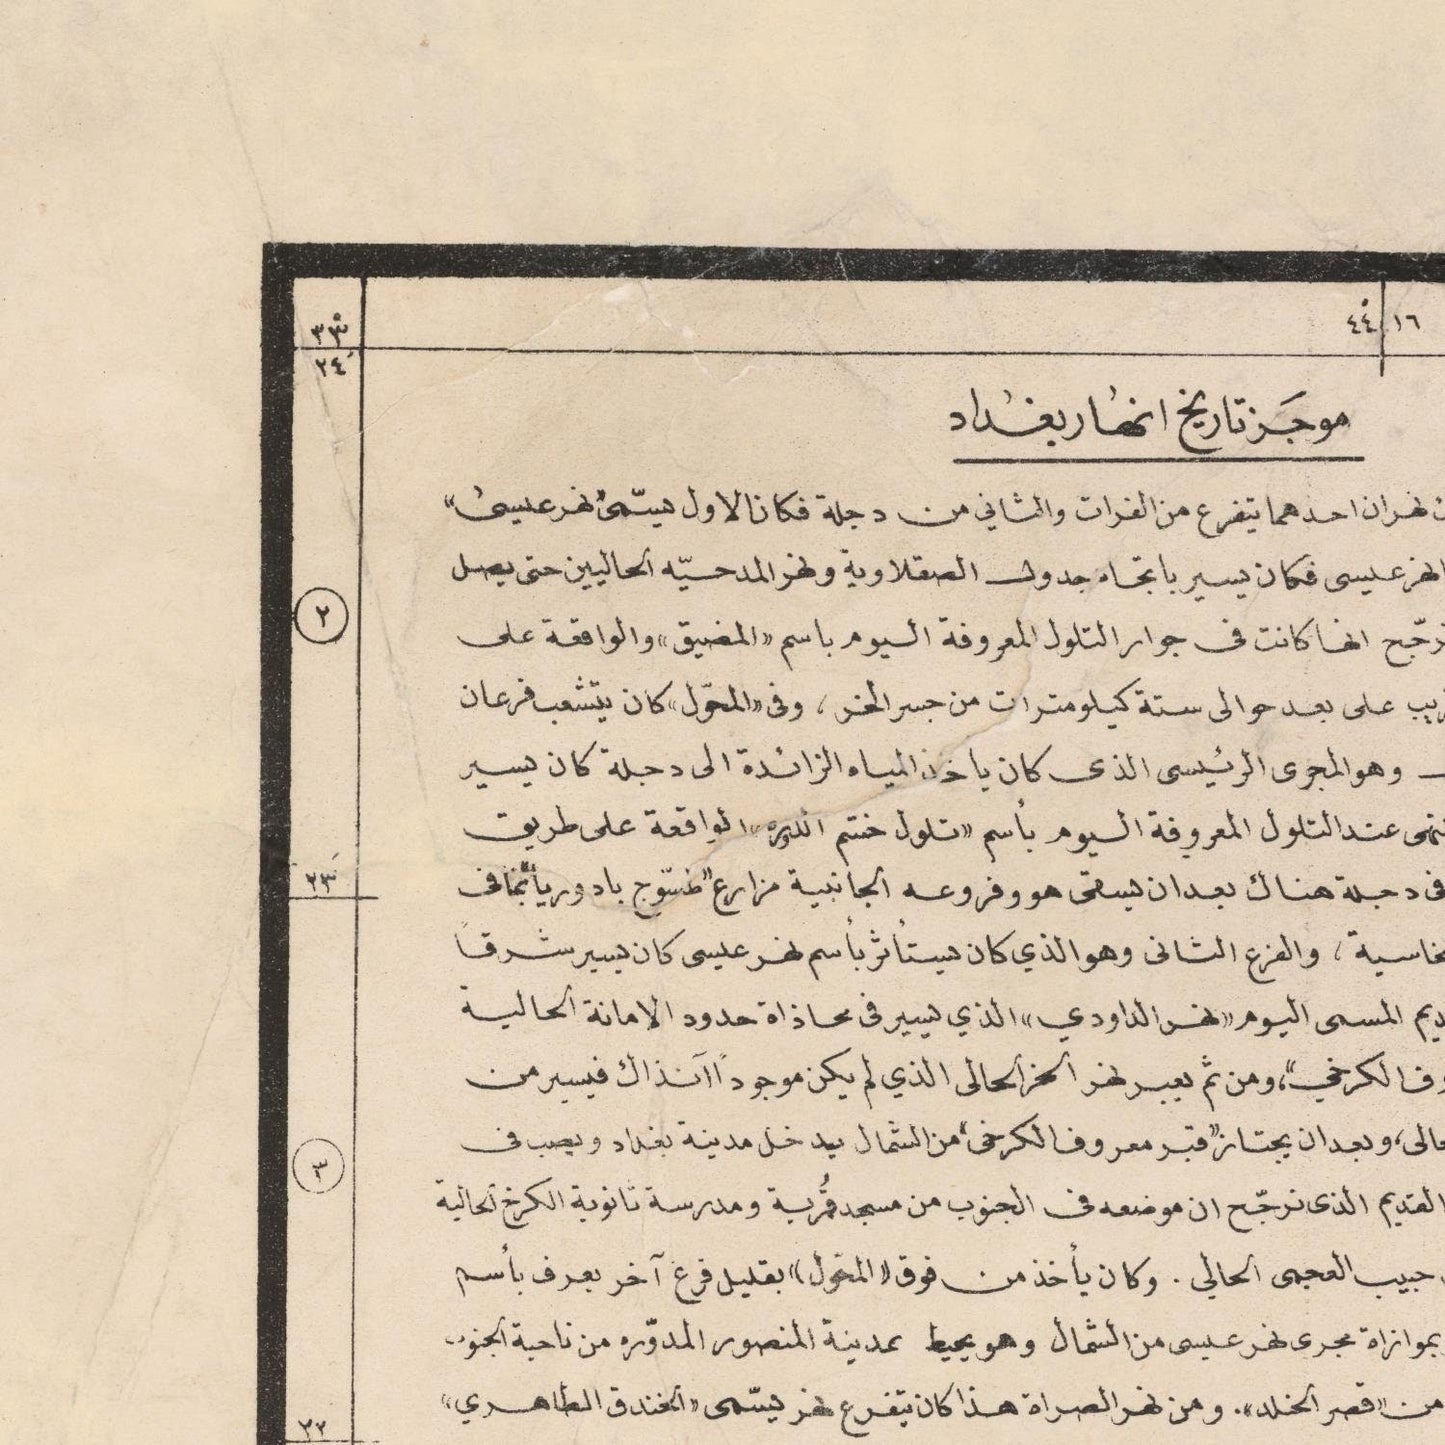 ٤٤° ١٦
٣٣°
٢٤´
موجز تاريخ انهار بغداد
نهران احدهما يتفرع من الفرات والثاني من دجلة فكان الاول يسمّى "نهر عيسى"
نهر عيسى فكان يسير باتجاه جدول الصقلاوية ونهر المدحيّه الحاليين حتى يصل
انها كانت في جوار التلول المعروفة اليوم باسم «المضيق» والواقعة على
على بعد حوالى ستة كيلومترات من جسر الخر ، وفي «المحوّل» كان يتشعب فرعان
٢
وهو المجرى الرئيسى الذى كان ياخذ المياه الزائدة الى دجلة كان يسير
عند التلول المعروفة اليوم بأسم «تلول خشم الدوره» الواقعة على طريق
فى دجلة هناك بعد ان يسقى هو وفروعه الجانبية مزارع "طسّوج بادوريا"
٢٣´
، والفرع الثانى وهو الذي كان يستأثر بأسم نهر عيسى كان يسير شرقاً
المسمى اليوم «نهر الداودي» الذي يسير فى محاذاة حدود الامانة الحالية
الكرخي"، ومن ثم يعبر نهر الخر الحالى الذي لم يكن موجوداً آنذاك فيسير من
وبعد ان يجتاز "قبر معروف الكرخى" من الشمال يدخل مدينة بغداد ويصب فى
٣
القديم الذى نرجّح ان موضعه فى الجنوب من مسجد قُمرية ومدرسة ثانوية الكرخ الحالية
حبيب العجمى الحالي . وكان يأخذ من فوق «المحّول» بقليل فرع آخر يعرف بأسم
بموازاة مجرى نهر عيسى من الشمال وهو يحيط بمدينة المنصور المدوّره من ناحية الجنوب
من «قصر الخلد». ومن نهر الصراة هذا كان يتفرع نهر يسّمى «الخندق الطاهري»
٢٢